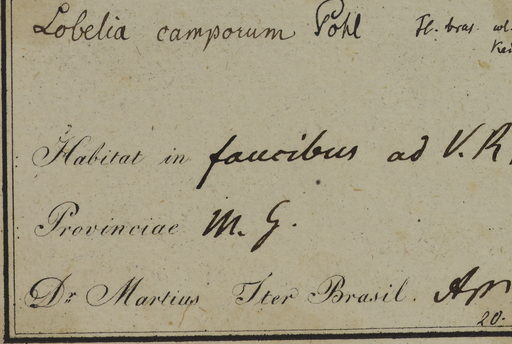 Lobelia camporum Pohl Fl. bras. vol.
Habitat in faucibus ad V. R
Provinciae M. G.
Dr Martius Iter Brasil. Apr
20.